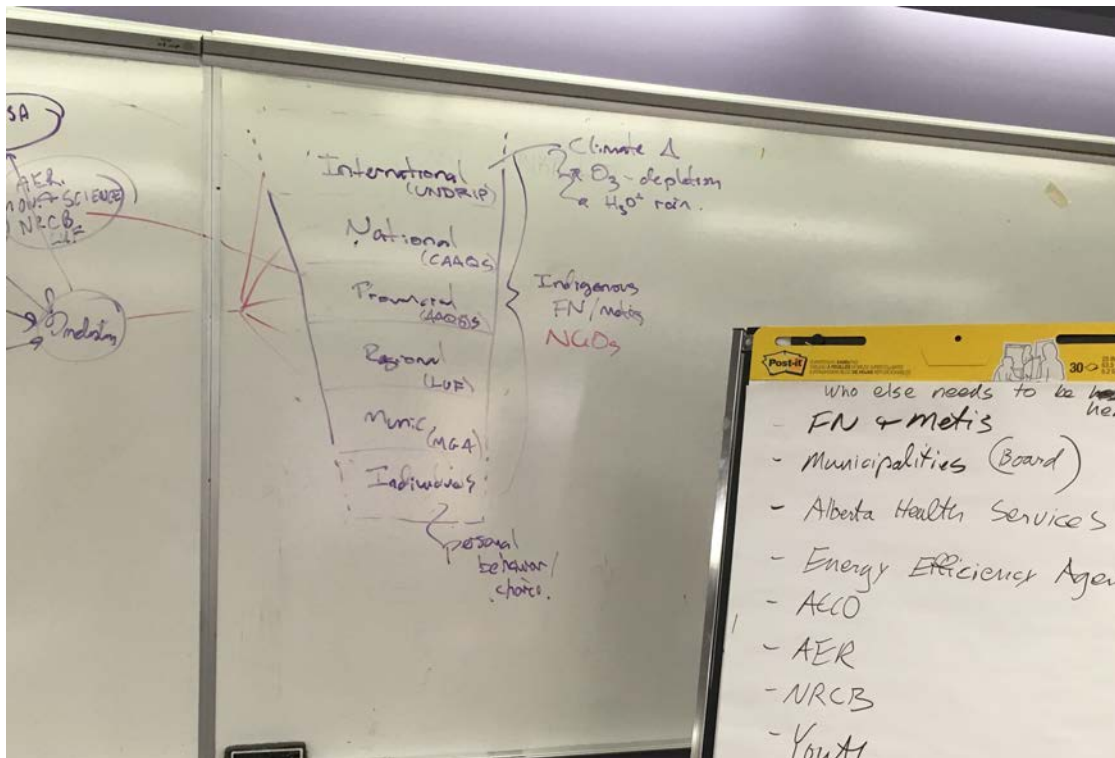 SA
AER
MON & SCIENCE
NRCB
Industry
International
(UNDRIP)
National
(CAAQS)
Provincial
(AAQOs)
Regional
(LUF)
Munic
(MGA)
Individuals
personal
behavior/
choice.
Climate Δ
O₃-depletion
H₃O⁺ rain.
Indigenous
FN/metis
NGOs
Post-it
30
who else needs to be
- FN & Metis
- Municipalities (Board)
- Alberta Health Services
- Energy Efficiency Agen
- AER
- NRCB
- Youth